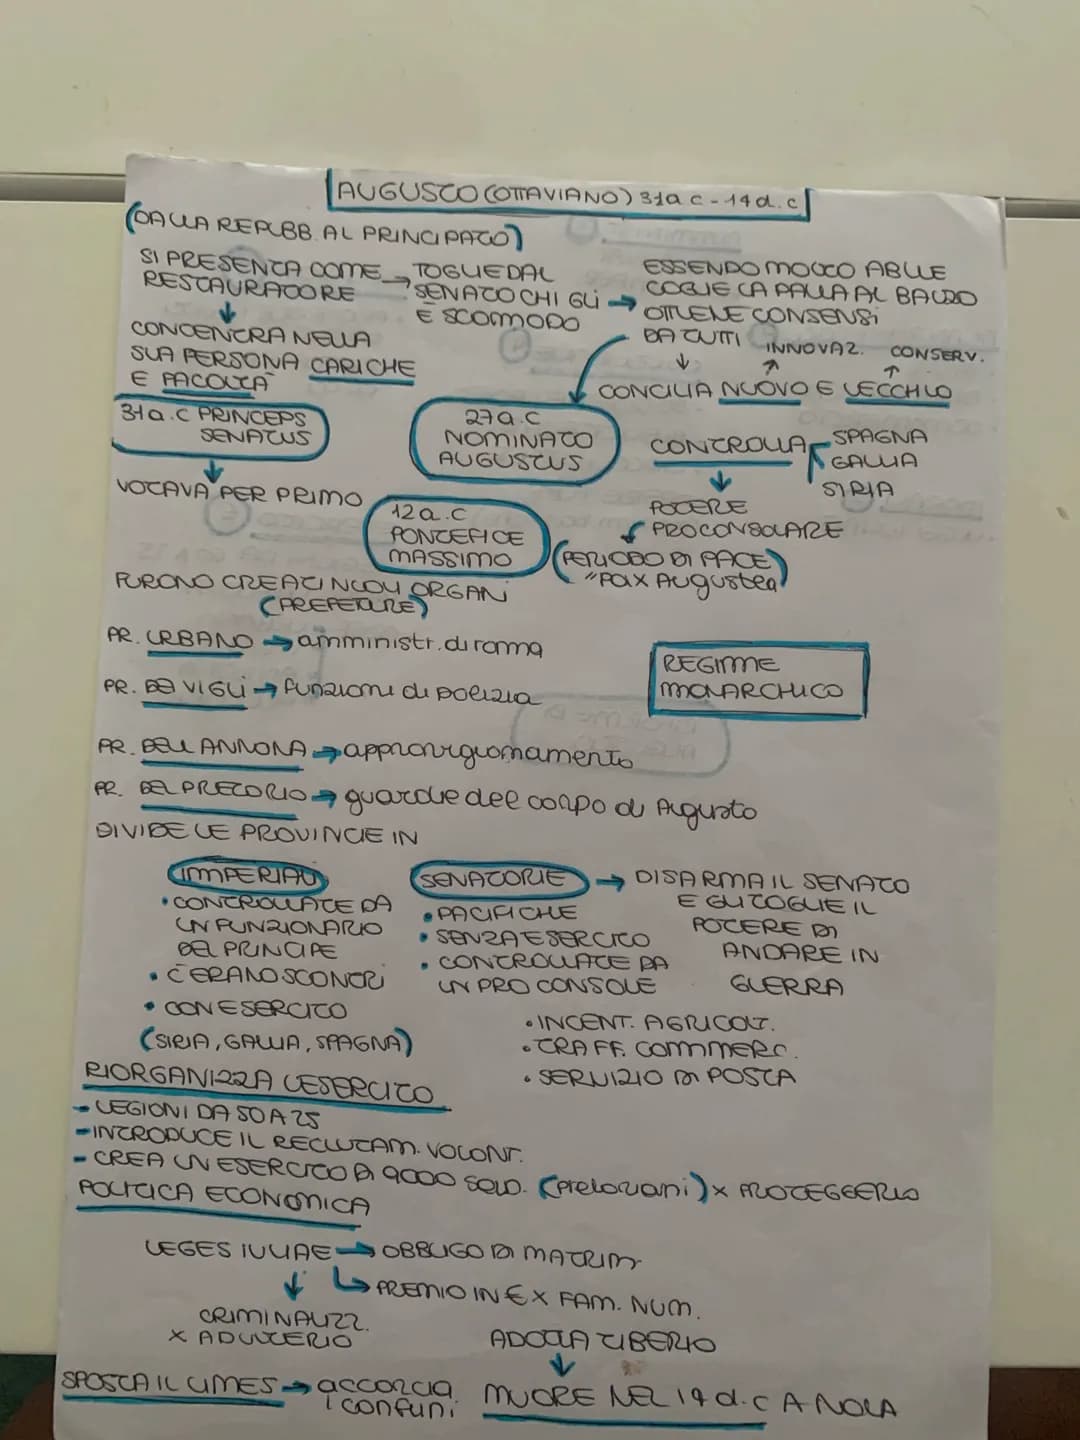 AUGUSTO (OTTAVIANO) 31a.c - 14 d.c
(DALLA REPUBB. AL PRINCIPATO)
SI PRESENTA COME → TOGLIE DAL
RESTAURATORE
SENATO CHI GLI →
È SCOMODO
ESSENDO MOLTO ABILE
COGLIE LA PALLA AL BALZO
OTTIENE CONSENSI
DA TUTTI
INNOVAZ. CONSERV.
CONCILIA NUOVO E VECCHIO
CONCENTRA NELLA
SUA PERSONA CARICHE
E FACOLTÀ
31a.c PRINCEPS
SENATUS
VOTAVA PER PRIMO
27a.c
NOMINATO
AUGUSTUS
CONTROLLA
SPAGNA
GALLIA
SIRIA
POTERE
PROCONSOLARE
(PERIODO DI PACE)
"Pax Augustea
12a.c
PONTEFICE
MASSIMO
FURONO CREATI NUOVI ORGANI
(PREFETURE)
PR. URBANO → amministr. di roma
PR. DEI VIGILI → funzioni di polizia
PR. DELL ANNONA → approvvigionamento
PR. DEL PRETORIO → guardie del corpo di Augusto
REGIME
MONARCHICO
DIVIDE LE PROVINCIE IN
IMPERIALI
• CONTROLLATE DA
UN FUNZIONARIO
DEL PRINCIPE
• C'ERANO SCONTRI
• CON ESERCITO
(SIRIA, GALLIA, SPAGNA)
SENATORIE → DISARMA IL SENATO
E GLI TOGLIE IL
POTERE DI
ANDARE IN
GUERRA
• PACIFICHE
• SENZA ESERCITO
• CONTROLLATE DA
UN PRO CONSOLE
• INCENT. AGRICOLT.
• TRAFF. COMMERC.
• SERVIZIO DI POSTA
RIORGANIZZA L'ESERCITO
- LEGIONI DA 50 A 25
- INTRODUCE IL RECLUTAM. VOLONT.
- CREA UN ESERCITO DI 9000 SOLD. (pretoriani) x PROTEGGERLO
POLITICA ECONOMICA
LEGES IULIAE → OBBLIGO DI MATRIM
PREMIO IN € X FAM. NUM.
CRIMINALIZZ.
X ADULTERIO
ADOTTA TIBERIO
SPOSTA IL LIMES → accorcia
i confini
MUORE NEL 14 d.c A NOLA